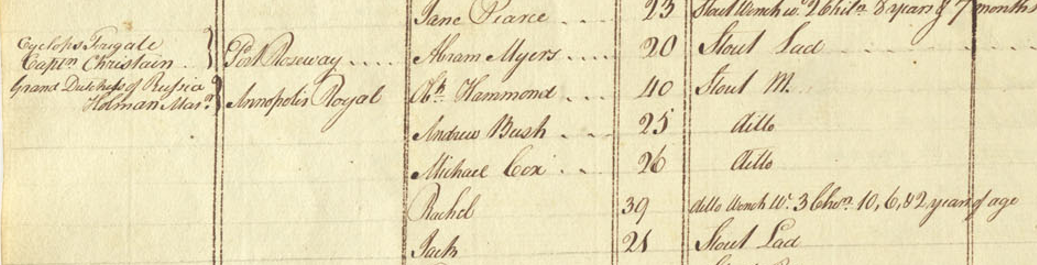 Jane Pearce .... 23 Stout Wench w. 2 Chiln. 8 years & 7 months
Cyclops Frigate
Captn. Christain .. } Port Roseway ..... Abram Myers ..... 20 Stout Lad
Grand Dutchess of Russia
Holman Masr. } Annopolis Royal Obh. Hammond ... 40 Stout M.
Andrew Bush .... 25 ditto
Michael Cox ... 26 ditto
Rachel 39 ditto Wench W. 3 Chn. 10, 6, & 2 years of age
Jack 21 Stout Lad